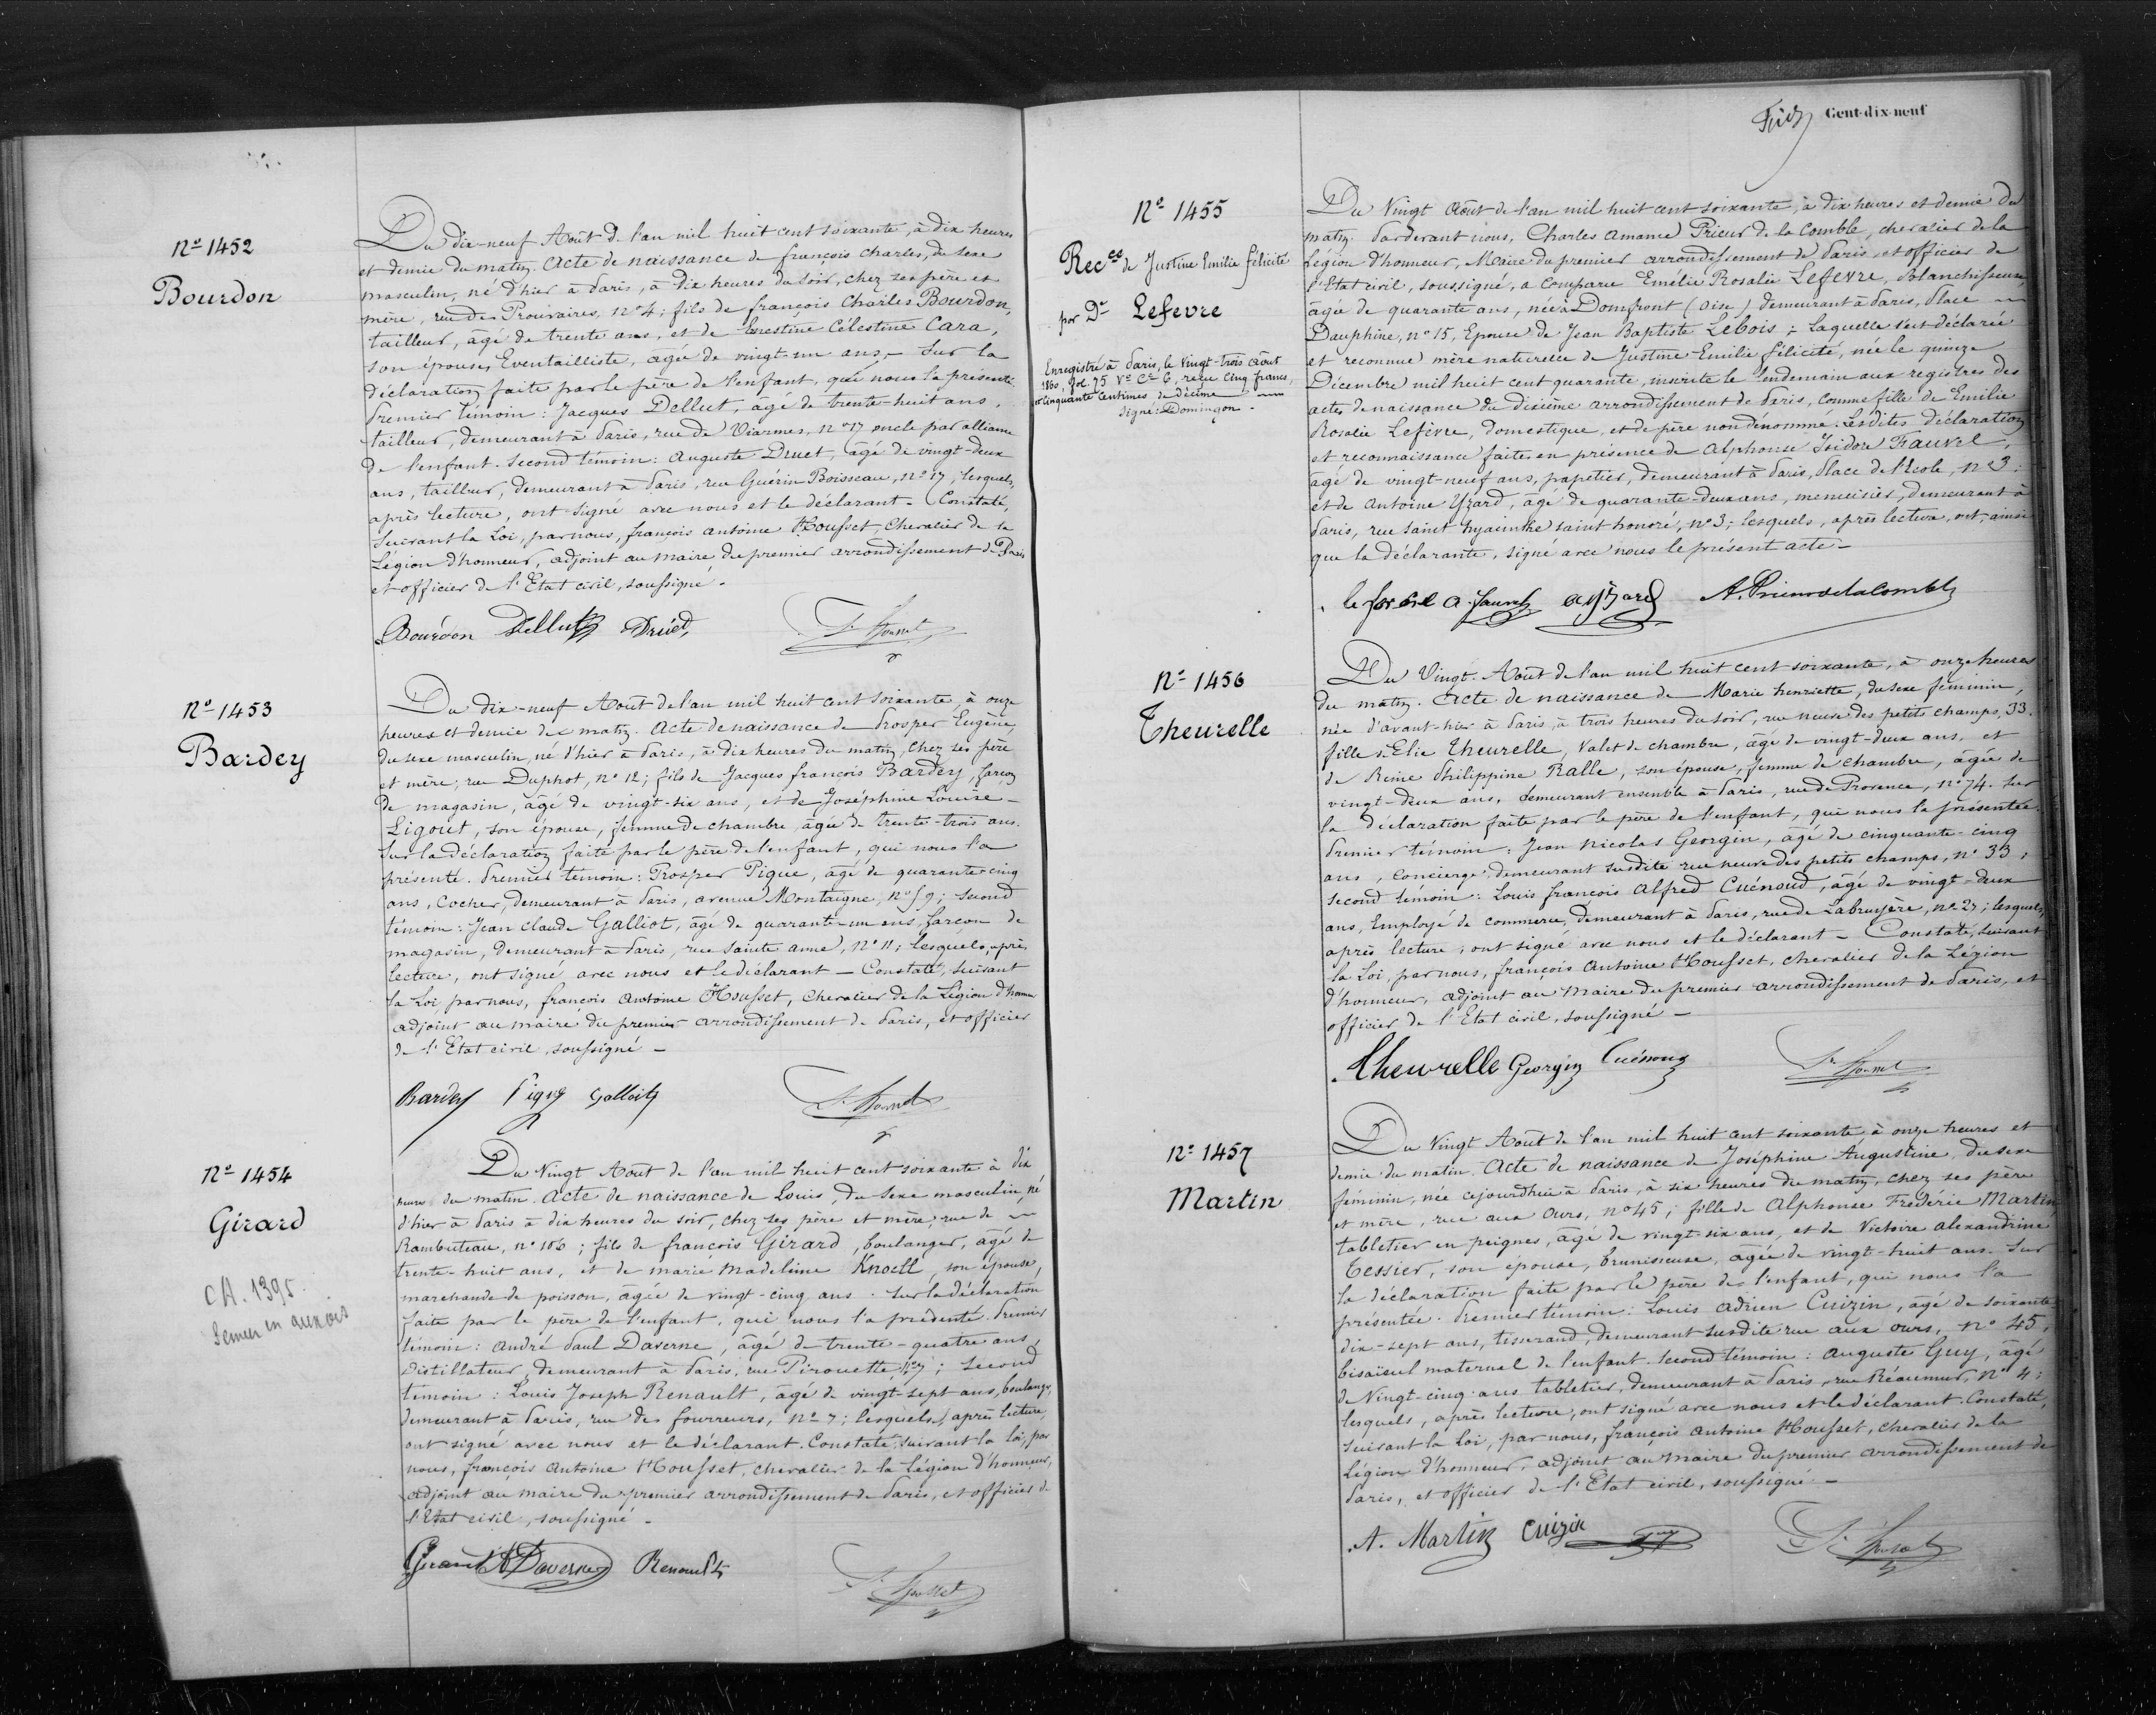 Nº 1452
Bourdon
Du dix-neuf Août de l'an mil huit cent soixante, à dix heures
et demie du matin. Acte de naissance de françois Charles, du sexe
masculin, né d'hier à Paris, à dix heures du soir, chez ses père et
mère, rue des Prouvaires, nº 4; fils de françois Charles Bourdon,
tailleur, âgé de trente ans, et de Ernestine Célestine Cara,
son épouse, Eventailliste, âgée de vingt-un ans. Sur la
déclaration faite par le père de l'enfant, qui nous l'a présenté.
Premier témoin: Jacques Dellut, âgé de trente-huit ans,
tailleur, demeurant à Paris, rue de Viarmes, nº 17 oncle par alliance
de l'enfant. Second témoin: Auguste Druet, âgé de vingt-deux
ans, tailleur, demeurant à Paris, rue Guérin Boisseau, nº 17, lesquels,
après lecture, ont signé avec nous et le déclarant - Constaté,
suivant la Loi, par nous, françois antoine Housset, chevalier de la
Légion d'honneur, adjoint au maire du premier arrondissement de Paris
et officier de l'Etat civil, soussigné -
Bourdon Dellut Druet
Nº 1453
Bardey
Du dix-neuf Août de l'an mil huit cent soixante, à onze
heures et demie du matin. Acte de naissance de Prosper Eugène,
du sexe masculin, né d'hier à Paris, à dix heures du matin, chez ses père
et mère, rue Duphot, nº 12; fils de Jacques françois Bardey, garçon
de magasin, âgé de vingt-six ans, et de Joséphine Louise
Ligout, son épouse, femme de chambre, âgée de trente-trois ans.
Sur la déclaration faite par le père de l'enfant, qui nous l'a
présenté. Premier témoin: Prosper Pigue, âgé de quarante-cinq
ans, cocher, demeurant à Paris, avenue Montaigne, nº 59; second
témoin: Jean Claude Galliot, âgé de quarante-un ans, garçon de
magasin, demeurant à Paris, rue Sainte anne, nº 11; lesquels, après
lecture, ont signé avec nous et le déclarant - Constaté, suivant
la Loi, par nous, françois antoine Housset, chevalier de la Légion d'honneur
adjoint au maire du premier arrondissement de Paris, et officier
de l'Etat civil, soussigné -
Bardey Galliot
Nº 1454
Girard
CA. 1395.
Semur en auxois
Du Vingt Août de l'an mil huit cent soixante à dix
heures du matin. Acte de naissance de Louis, du sexe masculin, né
d'hier à Paris à dix heures du soir, chez ses père et mère, rue de
Rambuteau, nº 106; fils de françois Girard, boulanger, âgé de
trente-huit ans, et de marie madeleine Knoell, son épouse,
marchande de poisson, âgée de vingt-cinq ans. Sur la déclaration
faite par le père de l'enfant, qui nous l'a présenté. Premier
témoin: andré Paul Daverne, âgé de trente-quatre ans,
Distillateur, demeurant à Paris, rue Pirouette, nº 7; second
témoin: Louis Joseph Renault, âgé de vingt-sept ans, boulanger,
demeurant à Paris, rue des fourreurs, nº 7; lesquels, après lecture,
ont signé avec nous et le déclarant. Constaté, suivant la Loi, par
nous, françois antoine Housset, chevalier de la Légion d'honneur,
adjoint au maire du premier arrondissement de Paris, et officier de
l'Etat civil, soussigné -
Girard A Daverne Renault
Cent-dix-neuf
Nº 1455
Recce de Justine Emilie félicité
par De Lefevre
Enregistré à Paris, le Vingt-trois août
1860, fol. 75 Vº Ce 6, reçu cinq francs,
et cinquante centimes de décime
signé: Domingon -
Du Vingt Août de l'an mil huit cent soixante, à dix heures et demie du
matin. Pardevant nous, Charles amance Prieur de la Comble, chevalier de la
Légion d'honneur, Maire du premier arrondissement de Paris, et officier de
l'Etat civil, soussigné, a comparu Emélie Rosalie Lefevre, Blanchisseuse,
âgée de quarante ans, née à Domfront (Oise) demeurant à Paris, Place
Dauphine, nº 15, Epouse de Jean Baptiste Lebois; Laquelle s'est déclarée
et reconnue mère naturelle de Justine-Emilie félicité, née le quinze
Décembre mil huit cent quarante, inscrite le lendemain aux registres des
actes de naissance du dixième arrondissement de Paris, comme fille de Emilie
Rosalie Lefèvre, domestique, et de père non dénommé. Lesdites déclaration
et reconnaissance faites en présence de Alphonse Isidore Fauvel,
âgé de vingt-neuf ans, papetier, demeurant à Paris, Place de l'Ecole, nº 3;
et de Antoine Yzard, âgé de quarante-deux ans, menuisier, demeurant à
Paris, rue saint hyacinthe saint honoré, nº 3; lesquels, après lecture, ont, ainsi
que la déclarante, signé avec nous le présent acte -
A. fauvel A. Prieur de la Comble
Nº 1456
Theurelle
Du Vingt Août de l'an mil huit cent soixante, à onze heures
du matin. Acte de naissance de Marie henriette, du sexe féminin,
née d'avant-hier à Paris, à trois heures du soir, rue neuve des petits champs, 33.
fille de Elie Theurelle, Valet de chambre, âgé de vingt-deux ans, et
de Reine Philippine Ralle, son épouse, femme de chambre, âgée de
vingt-deux ans, demeurant ensemble à Paris, rue de Provence, nº 74. Sur
la déclaration faite par le père de l'enfant, qui nous l'a présentée.
Premier témoin: Jean Nicolas Georgin, âgé de cinquante-cinq
ans, concierge, demeurant susdite rue neuve des petits champs, nº 33,
second témoin: Louis françois Alfred Cuénoud, âgé de vingt-deux
ans, Employé de commerce, demeurant à Paris, rue de Labruyère, nº 27; lesquels,
après lecture, ont signé avec nous et le déclarant - Constaté, suivant
la Loi, par nous, françois Antoine Housset, chevalier de la Légion
d'honneur, adjoint au Maire du premier arrondissement de Paris, et
officier de l'Etat civil, soussigné -
Theurelle Georgin Cuénoud
Nº 1457
Martin
Du Vingt Août de l'an mil huit cent soixante à onze heures et
demie du matin. Acte de naissance de Joséphine Augustine, du sexe
féminin, née cejourd'hui à Paris, à six heures du matin, chez ses père
et mère, rue aux Ours, nº 45; fille de Alphonse Frédéric Martin
tabletier en peignes, âgé de vingt-six ans, et de Victoire alexandrine
Tessier, son épouse, brunisseuse, âgée de vingt-huit ans. Sur
la déclaration faite par le père de l'enfant, qui nous l'a
présentée. Premier témoin: Louis adrien Cuizin, âgé de soixante
dix-sept ans, tisserand, demeurant susdite rue aux ours, nº 45,
bisaïeul maternel de l'enfant. Second témoin: auguste Guy, âgé
de Vingt-cinq ans tabletier, demeurant à Paris, rue Réaumur, nº 4;
lesquels, après lecture, ont signé avec nous et le déclarant. Constaté,
suivant la Loi, par nous, françois antoine Housset, chevalier de la
Légion d'honneur, adjoint au maire du premier arrondissement de
Paris, et officier de l'Etat civil, soussigné -
A. Martin Cuizin Guy